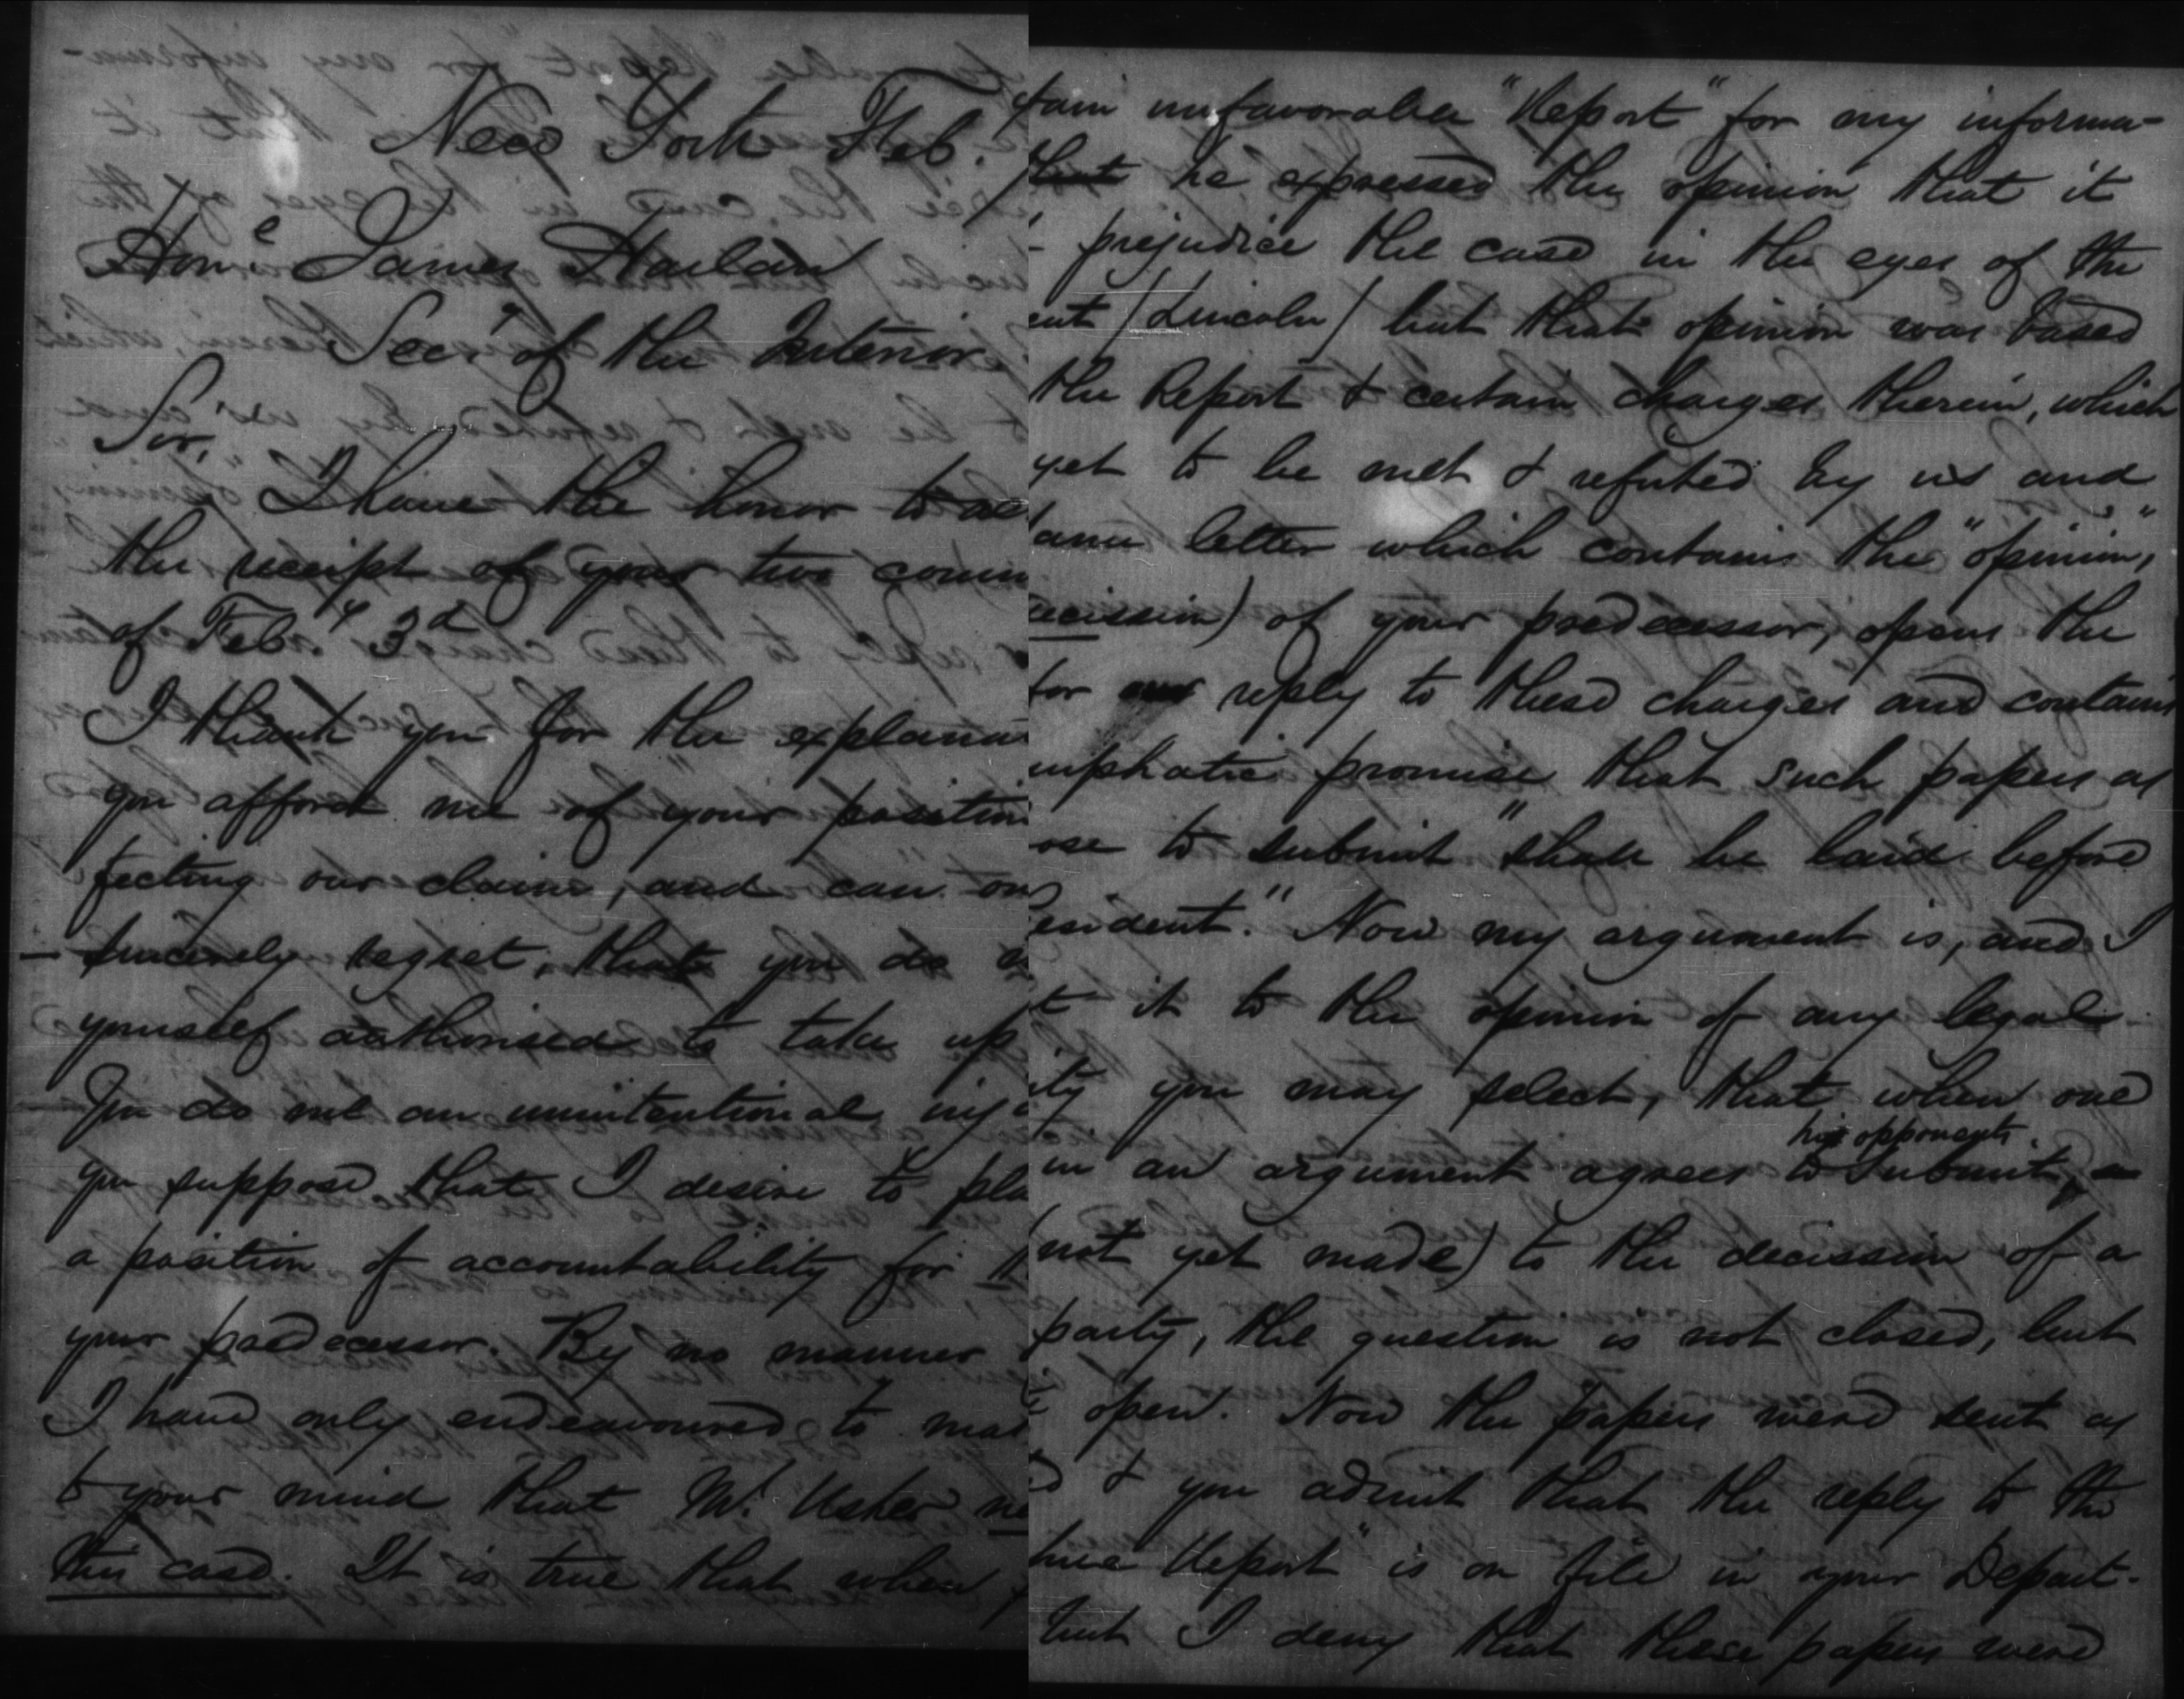 New York Feb.
Honle James Harlan
Secy of the Interior
Sir,
I have the honor to ac
the receipt of your two comm
of Feby 3d
I thank you for the explana
you afford me of your position
fecting our claim, and can on
sincerely regret, that you do
yourself authorised to take up
You do me an unintentional inj
you suppose that I desire to pla
a position of accountability for t
your predecessor. By no manner
I have only endeavoured to mak
to your mind that Mr. Usher ne
this case. It is true that when
tain unfavorable "Report" for my informa-
he expressed the opinion that it
prejudice the case in the eyes of the
ent (Lincoln) but that opinion was based
the Report & certain charges therein, which
yet to be met & refuted by us and
ame letter which contains the "opinion,"
ecission) of your predecessor, opens the
for our reply to these charges and contains
mphatic promise that such papers as
ose to submit "shall be laid before
esident." Now my argument is, and I
t it to the opinion of any legal
ity you may select, that when one
his opponents
in an argument agrees to submit,
(not yet made) to the decission of a
party, the question is not closed, but
open. Now the papers were sent as
d & you admit that the reply to the
Report" is on file in your Depart-
but I deny that these papers were